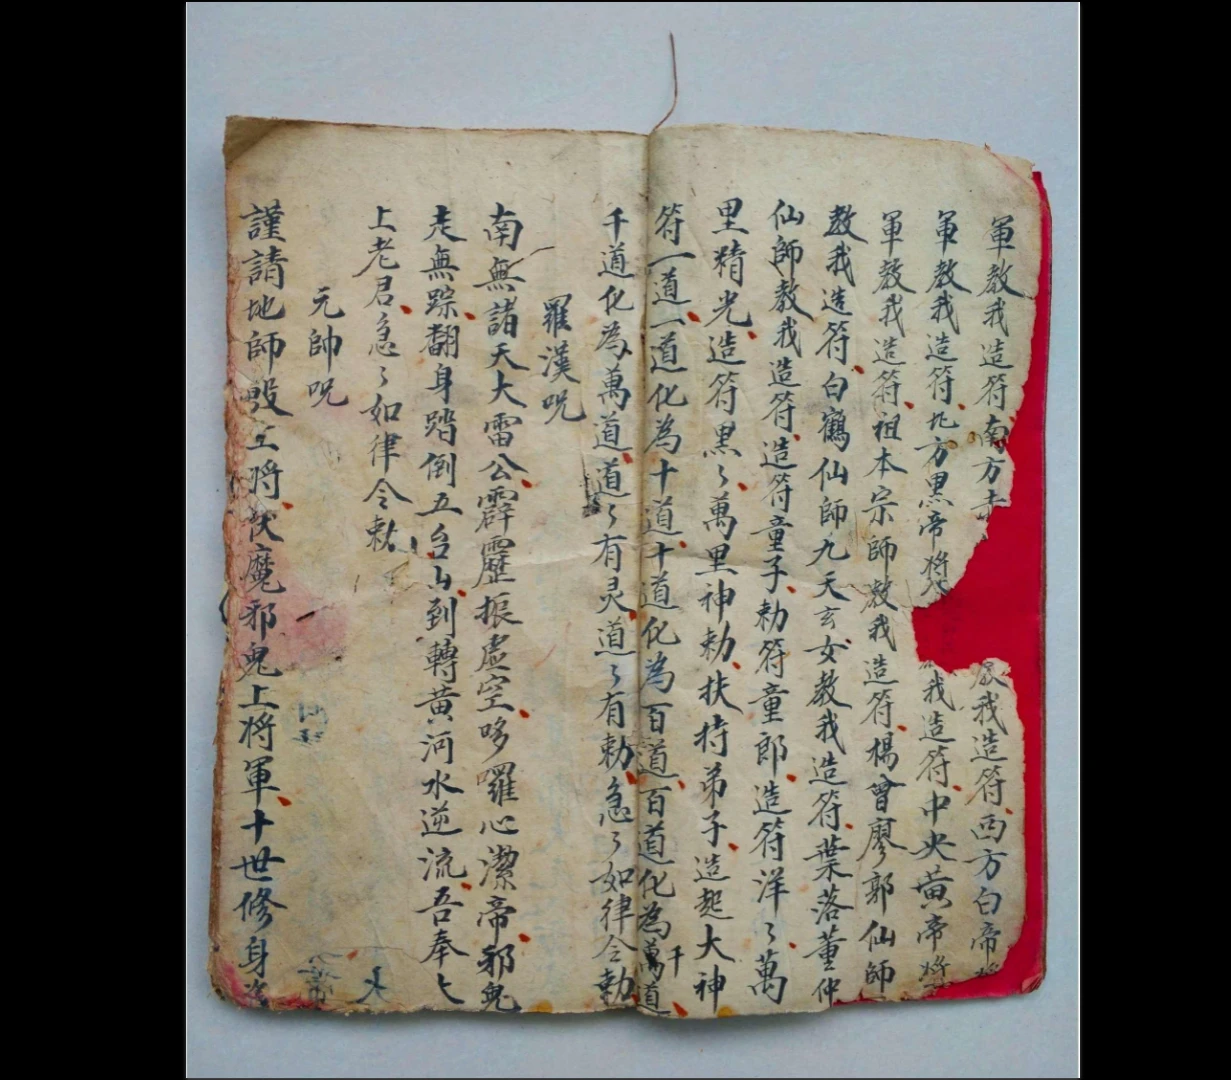 軍教我造符南方赤教我造符西方白帝將
軍教我造符北方黑帝將我造符中央黃帝將
軍教我造符祖本宗師教我造符楊曾廖郭仙師
教我造符白鶴仙師九天玄女教我造符葉落董仲
仙師教我造符造符童子勅符童郎造符洋〻萬
里精光造符黑〻萬里神勅扶持弟子造起大神
符一道一道化為十道十道化為百道百道化為千萬道
千道化為萬道道〻有灵道〻有勅急〻如律令勅
羅漢咒
南無諸天大雷公霹靂振虛空哆囉心潔帝邪鬼
走無踪翻身踏倒五台山到轉黃河水逆流吾奉七
上老君急〻如律令勅
元帥咒
謹請地師殷上將伏魔邪鬼上將軍十世修身